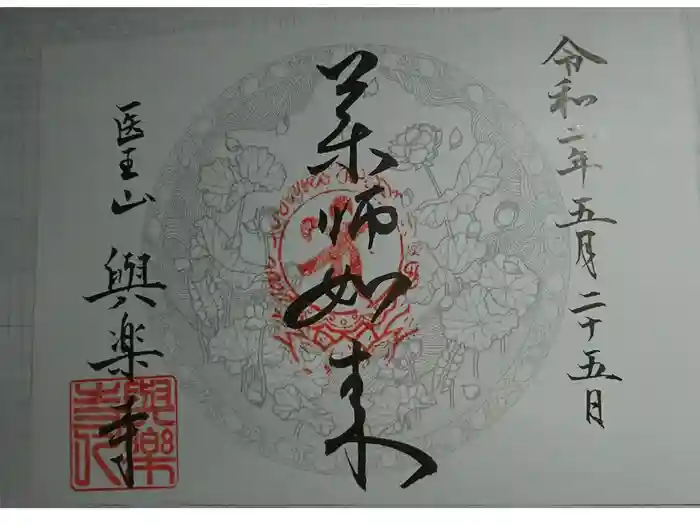 令和二年五月二十五日
薬師如来
医王山
與楽寺
與楽寺印